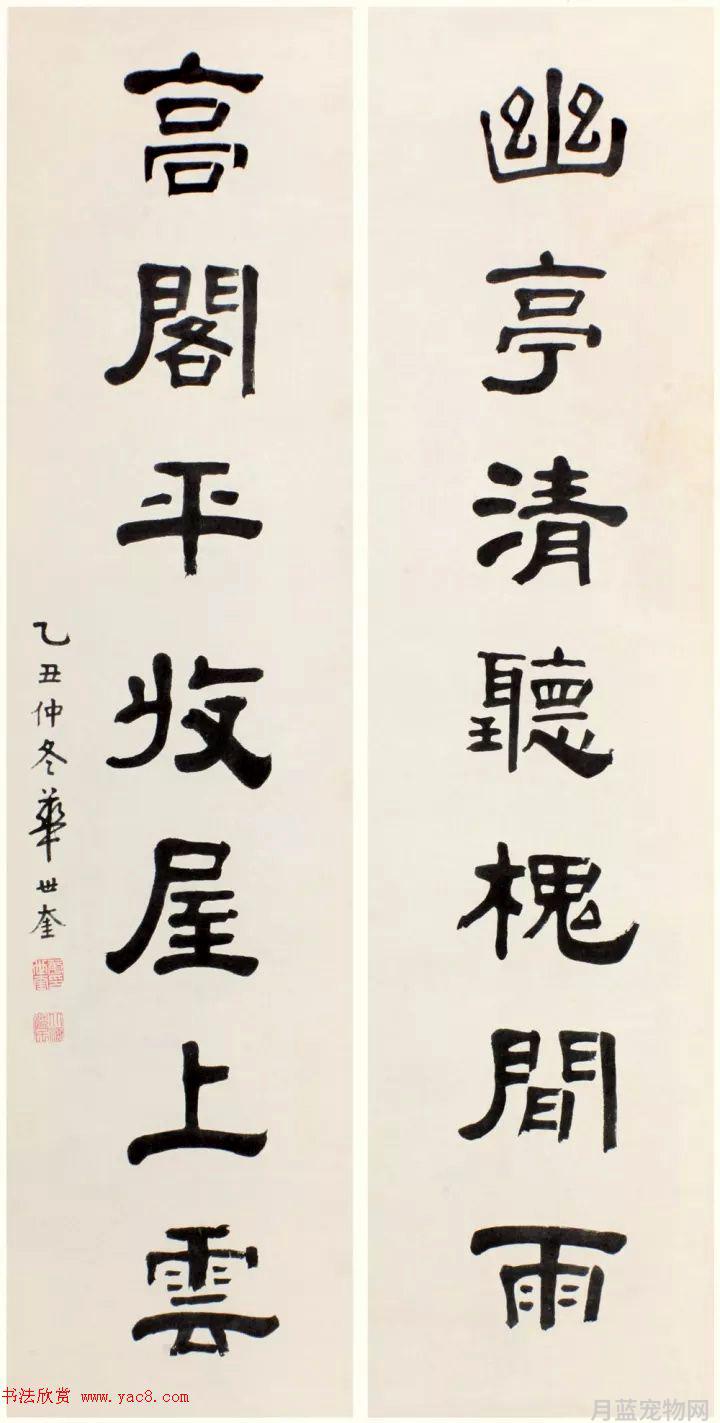 幽亭清聽槐間雨
高閣平收屋上雲
乙丑仲冬華世奎
书法欣赏 www.yac8.com
月蓝宠物网